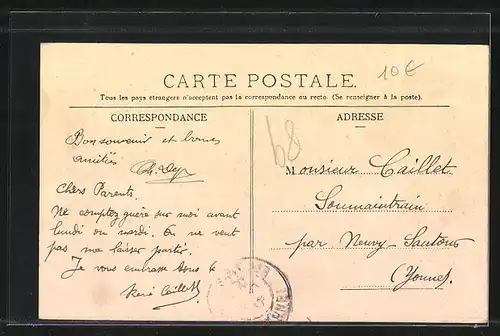 CARTE POSTALE.
10€
Tous les pays étrangers n'acceptent pas la correspondance au recto. (Se renseigner à la poste).
CORRESPONDANCE
ADRESSE
68
Bon souvenir et bonnes
amitiés
Chers Parents.
Ne comptez guère sur moi avant
lundi ou mardi. On ne veut
pas me laisser partir.
Je vous embrasse tous
René Caillet
Monsieur Caillet
Soumaintrain
par Neuvy-Sautour
(Yonne).